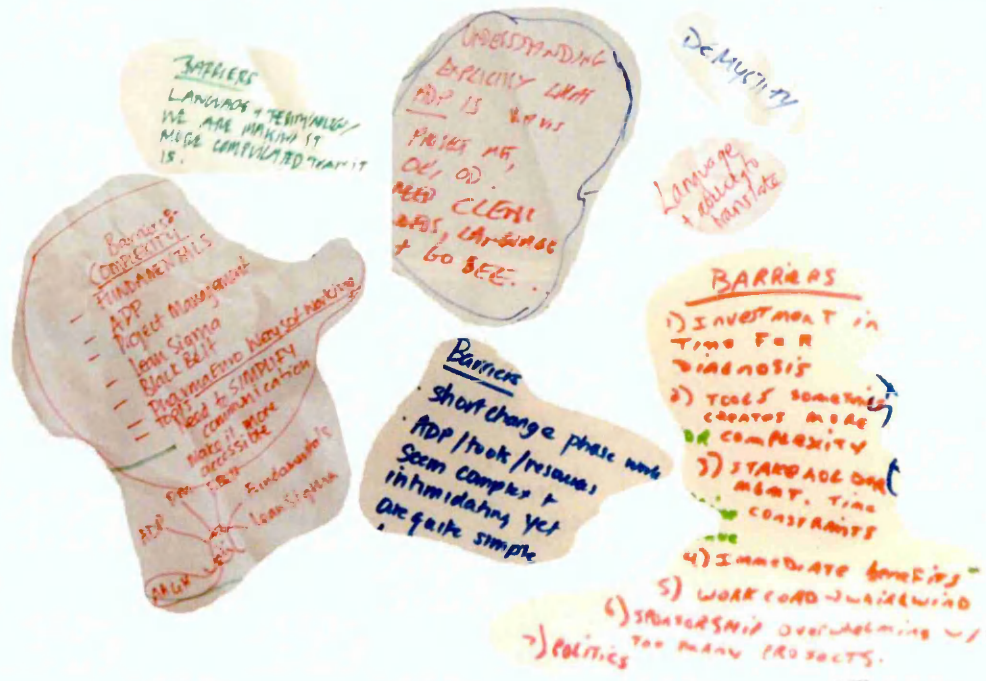 BARRIERS
LANGUAGE + TERMINOLOGY
WE ARE MAKING IT
MORE COMPLICATED THAN IT
IS.
UNDERSTANDING
EXPLICITLY WHAT
ADP IS
PROJECT MGT,
OE, OD.
NEED CLEAR
LANGUAGE
+ GO SEE...
DEMYSTIFY
Language
+ ability to
translate
Barriers-
COMPLEXITY
- FUNDAMENTALS
- ADP
- Project Management
- Lean Sigma
- Black Belt
- PharmaEnvo Ways of Working
- TOOLS
Need to SIMPLIFY
communication
make it more
accessible
Fundamentals
Lean Sigma
Barriers
short change phase work
. ADP/tools/resources
seem complex +
intimidating yet
are quite simple
BARRIERS
1) INVESTMENT IN
TIME FOR
DIAGNOSIS
2) TOOLS SOMETIMES
CREATES MORE
OR COMPLEXITY
3) STAKEHOLDER
MGMT. TIME
CONSTRAINTS
4) IMMEDIATE BENEFITS
5) WORKLOAD WHIRLWIND
6) SPONSORSHIP OVERWHELMING w/
TOO MANY PROJECTS.
7) POLITICS